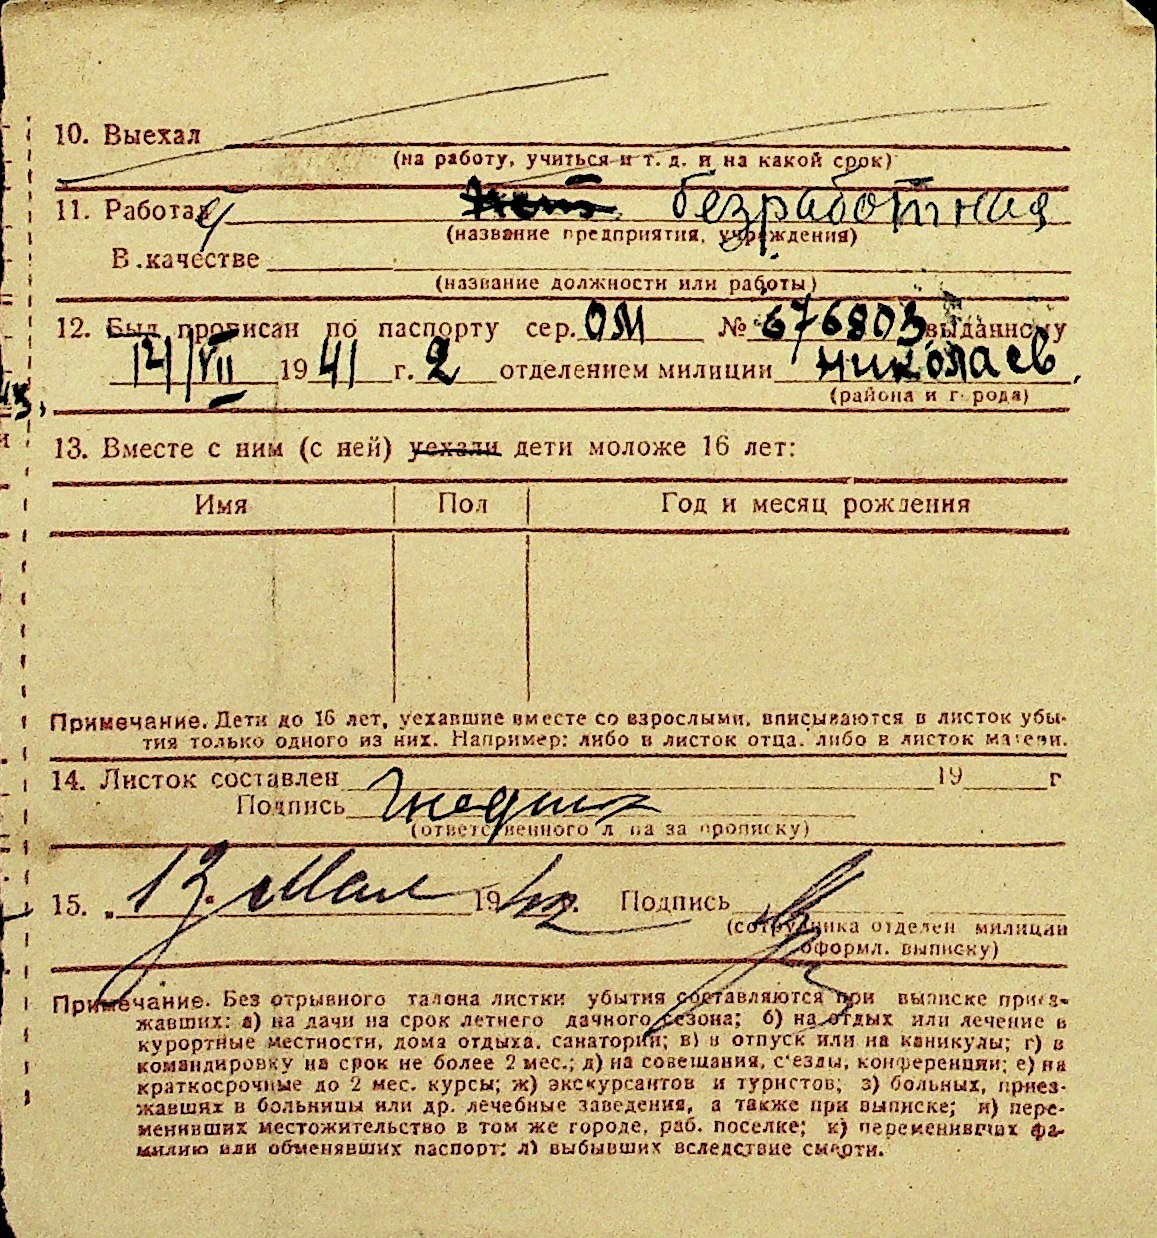 10. Выехал
(на работу, учиться и т. д. и на какой срок)
11. Работая безработная
(название предприятия, учреждения)
В качестве
(название должности или работы)
12. Был прописан по паспорту сер. ОМ № 676803 выданному
12/VII 1941 г. 2 отделением милиции Николаев,
(района и города)
13. Вместе с ним (с ней) уехали дети моложе 16 лет:
Имя Пол Год и месяц рождения
Примечание. Дети до 16 лет, уехавшие вместе со взрослыми, вписываются в листок убы-
тия только одного из них. Например: либо в листок отца, либо в листок матери.
14. Листок составлен 19 г
Подпись
(ответственного лица за прописку)
15. „13. Мая 1942. Подпись
(сотрудника отделен милиции
оформл. выписку)
Примечание. Без отрывного талона листки убытия составляются при выписке приез-
жавших: а) на дачи на срок летнего дачного сезона; б) на отдых или лечение в
курортные местности, дома отдыха, санатории; в) в отпуск или на каникулы; г) в
командировку на срок не более 2 мес.; д) на совещания, с'езды, конференции; е) на
краткосрочные до 2 мес. курсы; ж) экскурсантов и туристов; з) больных, приез-
жавших в больницы или др. лечебные заведения, а также при выписке; и) пере-
менивших местожительство в том же городе, раб. поселке; к) переменивших фа-
милию или обменявших паспорт; л) выбывших вследствие смерти.